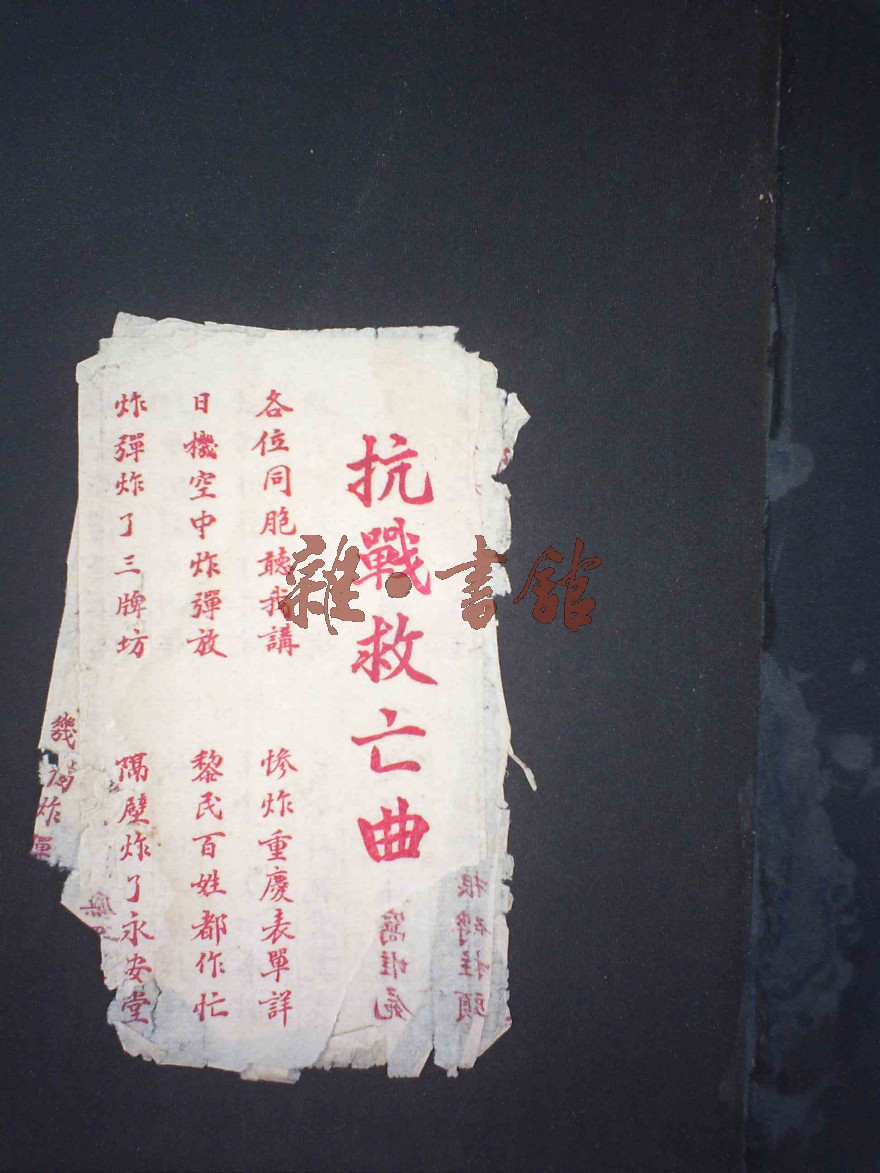 抗戰救亡曲
各位同胞聽我講 慘炸重慶表單詳
日機空中炸彈放 黎民百姓都作忙
炸彈炸了三牌坊 隔壁炸了永安堂
幾
炸彈
雜·書館